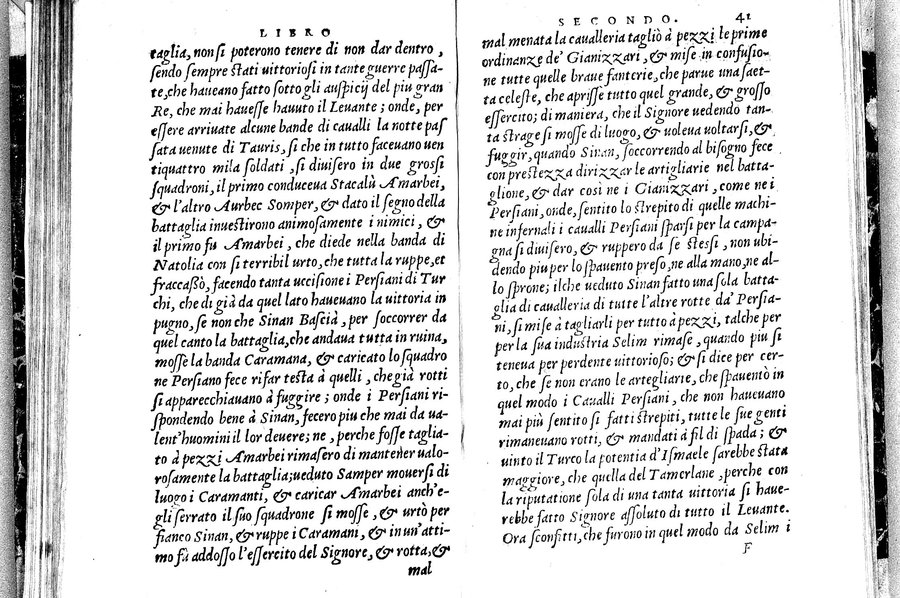 LIBRO
taglia, non si poterono tenere di non dar dentro,
sendo sempre stati uittoriosi in tante guerre passa-
te, che haueano fatto sotto gli auspicij del piu gran
Re, che mai hauesse hauuto il Leuante; onde, per
essere arriuate alcune bande di caualli la notte pas
sata uenute di Tauris, si che in tutto faceuano uen
tiquattro mila soldati, si diuisero in due grossi
squadroni, il primo conduceua Stacalù Amarbei,
& l'altro Aurbec Somper, & dato il segno della
battaglia inuestirono animosamente i nimici, &
il primo fù Amarbei, che diede nella banda di
Natolia con si terribil urto, che tutta la ruppe, et
fraccassò, facendo tanta uccisione i Persiani di Tur
chi, che di già da quel lato haueuano la uittoria in
pugno, se non che Sinan Bascià, per soccorrer da
quel canto la battaglia, che andaua tutta in ruina,
mosse la banda Caramana, & caricato lo squadro
ne Persiano fece rifar testa à quelli, che già rotti
si apparecchiauano à fuggire; onde i Persiani ri-
spondendo bene à Sinan, fecero piu che mai da ua-
lent'huomini il lor deuere; ne, perche fosse taglia-
to à pezzi Amarbei rimasero di mantener ualo-
rosamente la battaglia; ueduto Samper mouersi di
luogo i Caramanti, & caricar Amarbei anch'e-
gli serrato il suo squadrone si mosse, & urtò per
fianco Sinan, & ruppe i Caramani, & in un'atti-
mo fù addosso l'essercito del Signore, & rotta, &
mal
SECONDO. 41
mal menata la caualleria tagliò à pezzi le prime
ordinanze de' Gianizzari, & mise in confusio-
ne tutte quelle braue fanterie, che parue una saet-
ta celeste, che aprisse tutto quel grande, & grosso
essercito; di maniera, che il Signore uedendo tan-
ta strage si mosse di luogo, & uoleua uoltarsi, &
fuggir, quando Sinan, soccorrendo al bisogno fece
con prestezza dirizzar le artigliarie nel batta-
glione, & dar così ne i Gianizzari, come ne i
Persiani, onde, sentito lo strepito di quelle machi-
ne infernali i caualli Persiani sparsi per la campa-
gna si diuisero, & ruppero da se stessi, non ubi-
dendo piu per lo spauento preso, ne alla mano, ne al-
lo sprone; ilche ueduto Sinan fatto una sola batta-
glia di caualleria di tutte l'altre rotte da' Persia-
ni, si mise à tagliarli per tutto à pezzi, talche per
per la sua industria Selim rimase, quando piu si
teneua per perdente uittorioso; & si dice per cer-
to, che se non erano le artegliarie, che spauentò in
quel modo i Caualli Persiani, che non haueuano
mai più sentito si fatti strepiti, tutte le sue genti
rimaneuano rotti, & mandati à fil di spada; &
uinto il Turco la potentia d'Ismaele sarebbe stata
maggiore, che quella del Tamerlane, perche con
la riputatione sola di una tanta uittoria si haue-
rebbe fatto Signore assoluto di tutto il Leuante.
Ora sconfitti, che furono in quel modo da Selim i
F